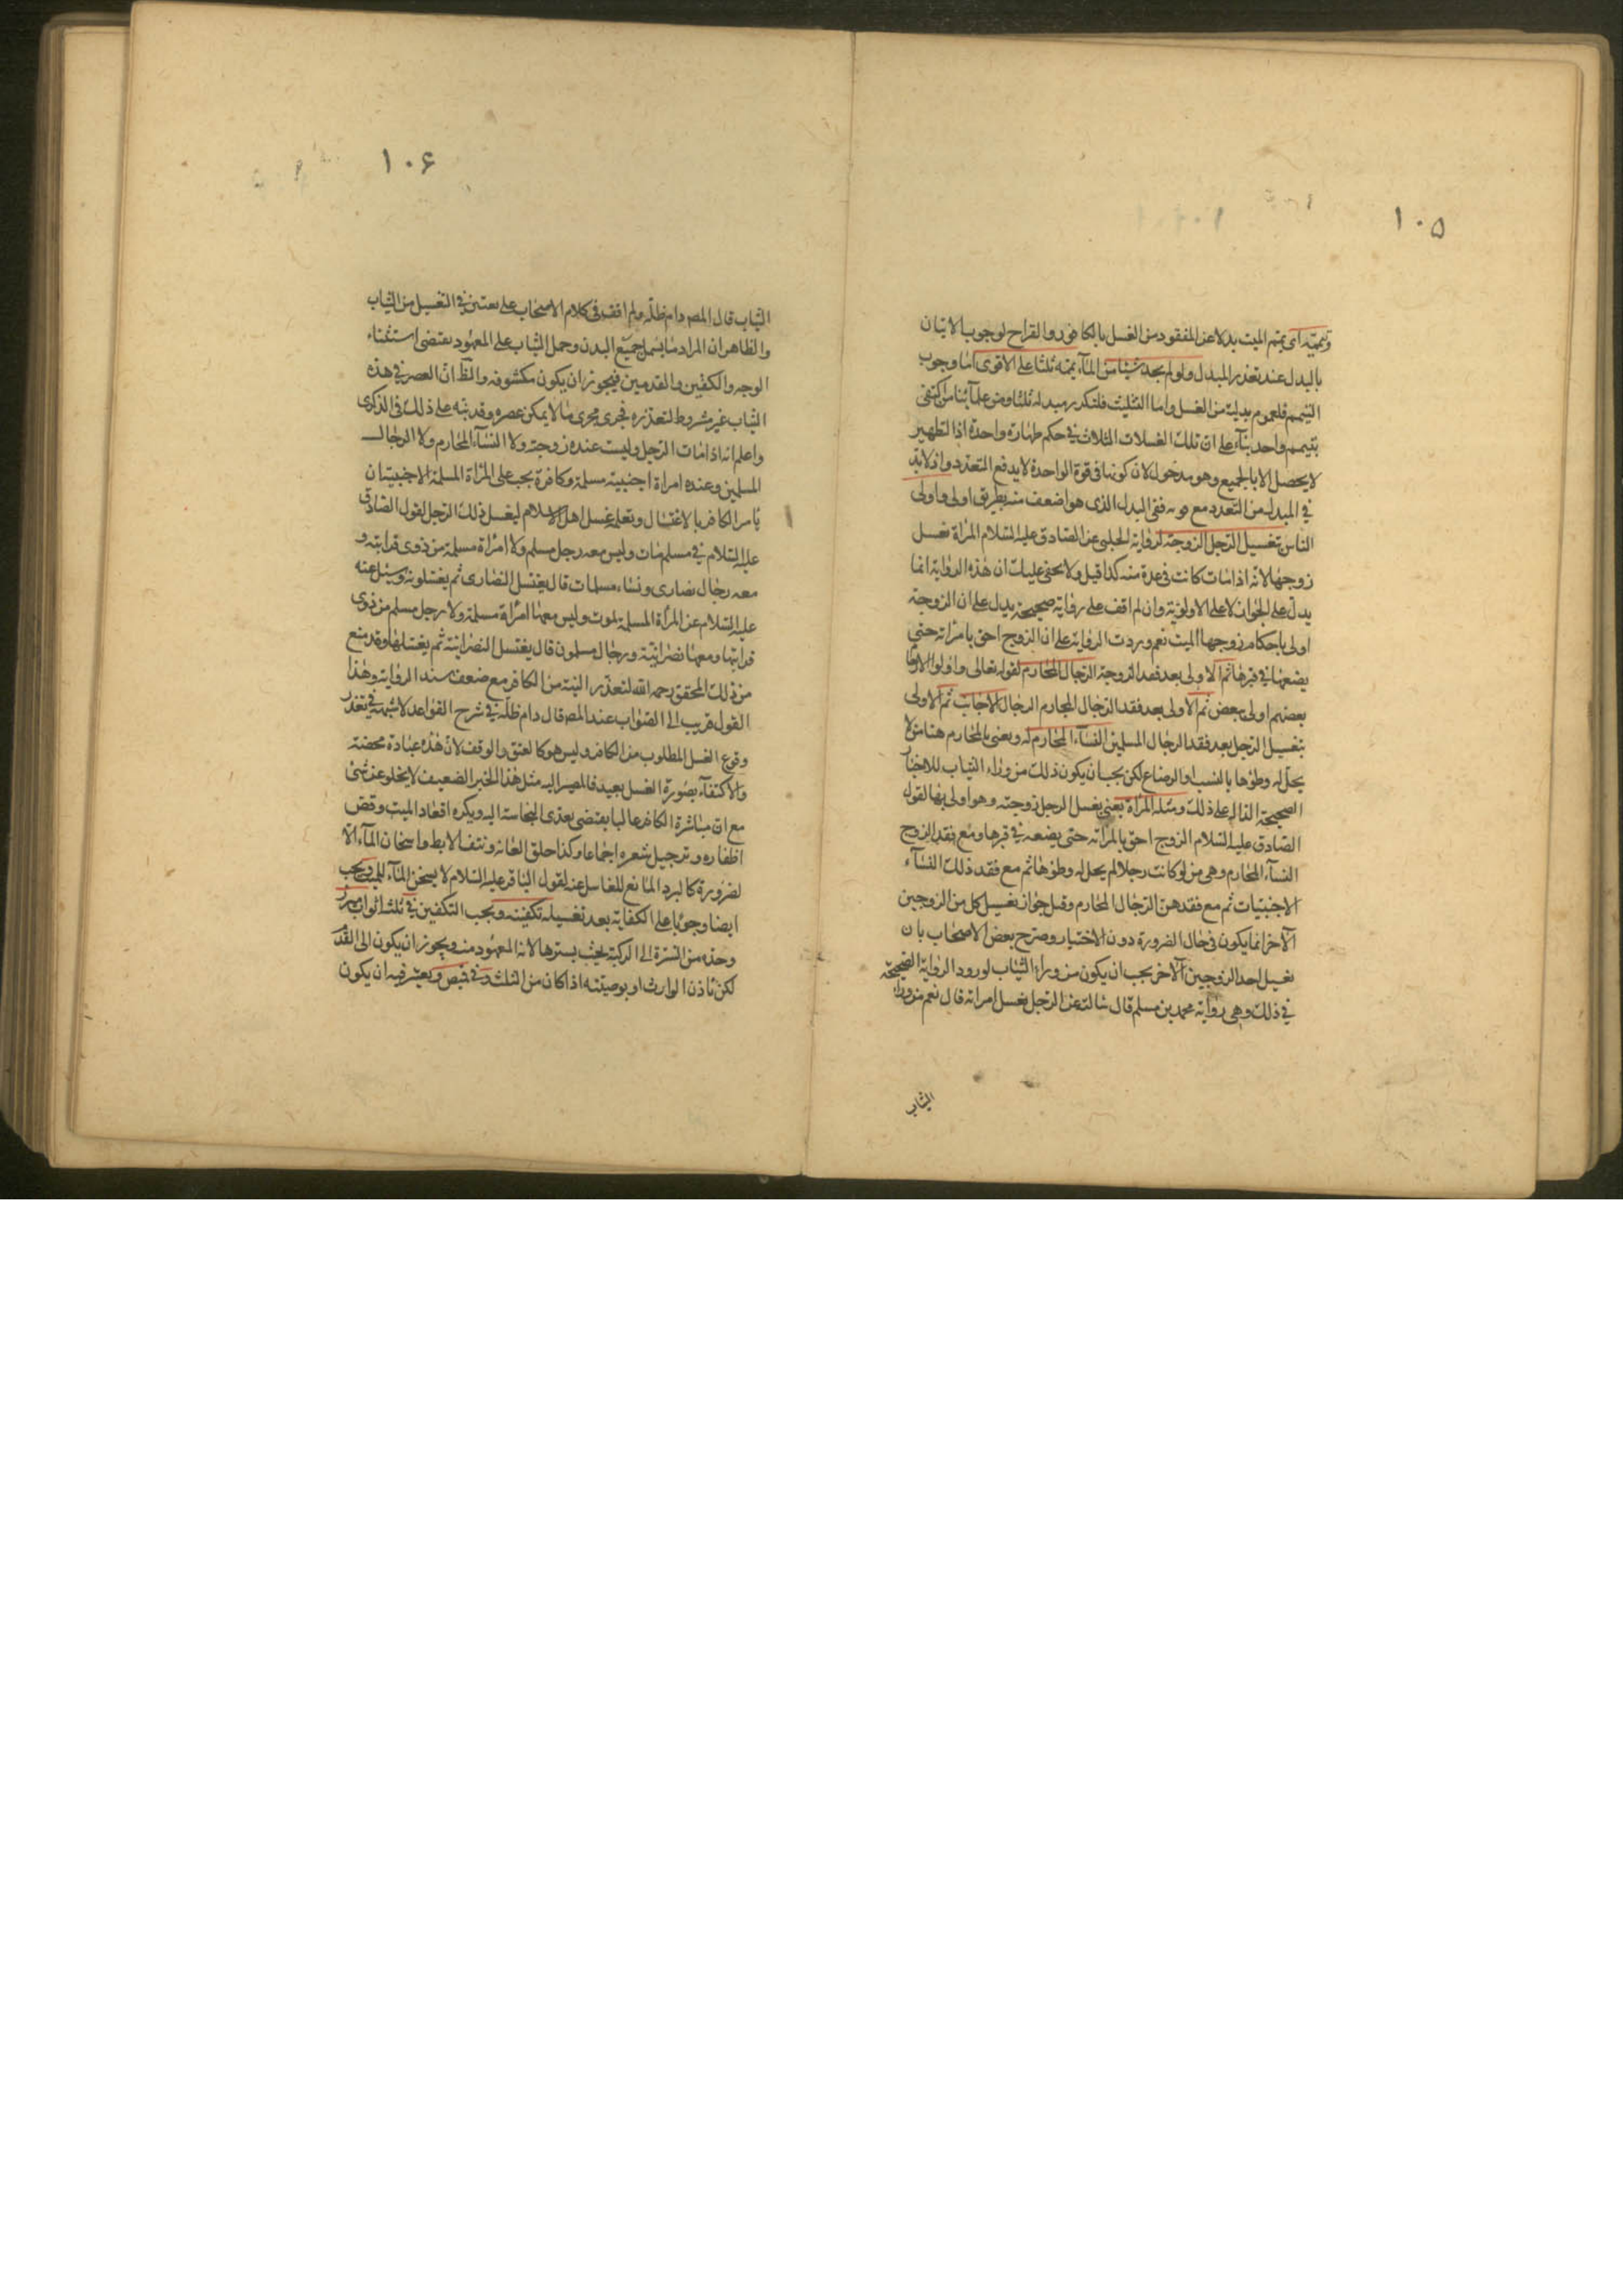 ١٠٥
ويممه اى يمم الميت بدلا عن المفقود من الغسل بالكافور والقراح لوجوب الاتيان
بالبدل عند تعذر المبدل ولو لم يجد شيئا من المآء يممه ثلثا على الاقوى اما وجوب
التيمم فلعموم بدليته من الغسل واما التثليث فلتكرر مبدله ثلثا ومن علمآئنا من اكتفى
بتيمم واحد بنآء على ان تلك الغسلات الثلاث فى حكم طهارة واحدة اذ التطهير
لا يحصل الا بالجميع وهو مدخول لان كونها فى قوة الواحدة لا يدفع التعدد واذ لابد
فى المبدل من التعدد مع قوته ففى البدل الذى هو اضعف منه بطريق اولى واولى
الناس تغسيل الرجل الزوجة لرواية الحلبى عن الصادق عليه السلام المرأة تغسل
زوجها لانه اذا مات كانت فى عدة منه كذا قيل ولا يخفى عليك ان هذه الرواية انما
يدل على الجواز لا على الاولوية وان لم اقف على رواية صحيحة يدل على ان الزوجة
اولى باحكام زوجها الميت نعم وردت الرواية على ان الزوج احق بامرأته حتى
يضعها فى قبرها ثم الاولى بعد فقد الزوجة الرجال المحارم لقوله تعالى واولوا الارحام
بعضهم اولى ببعض ثم الاولى بعد فقد الرجال المحارم الرجال الاجانب ثم الاولى
بتغسيل الرجل بعد فقد الرجال المسلمين النسآء المحارم له ويعنى بالمحارم هنا من لا
يحل له وطؤها بالنسب او الرضاع لكن يجب ان يكون ذلك من ورآء الثياب للاخبار
الصحيحة الدالة على ذلك ومثله المرأة يعنى يغسل الرجل زوجته وهو اولى بها لقول
الصادق عليه السلام الزوج احق بامرأته حتى يضعه فى قبرها ومع فقد الزوج
النسآء المحارم وهى من لو كانت رجلا لم يحل له وطؤها ثم مع فقد ذلك النسآء
الاجنبيات ثم مع فقدهن الرجال المحارم وقيل جواز تغسيل كل من الزوجين
الآخر انما يكون فى حال الضرورة دون الاختيار وصرح بعض الاصحاب بان
تغسيل احد الزوجين الآخر يجب ان يكون من ورآء الثياب لورود الرواية الصحيحة
فى ذلك وهى رواية محمد بن مسلم قال سالته عن الرجل يغسل امراته قال نعم من ورآء
الثياب
١٠۶
الثياب قال المصـ دام ظله ولم اقف فى كلام الاصحاب على تعيين فى التغسيل من الثياب
والظاهر ان المراد ما يشمل جميع البدن وحمل الثياب على المعهود يقتضى استثناء
الوجه والكفين والقدمين فيجوز ان يكون مكشوفة والظ ان العصر فى هذه
الثياب غير مشروط لتعذره فجرى مجرى ما لا يمكن عصره وقد نبه على ذلك فى الذكرى
واعلم انه اذا مات الرجل وليست عنده زوجته ولا النسآء المحارم ولا الرجال
المسلمين وعنده امراة اجنبية مسلمة وكافرة يجب على المرأة المسلمة الاجنبية ان
يامر الكافر بالاغتسال وتعلم غسل اهل الاسلام ليغسل ذلك الرجل لقول الصادق
عليه السلام فى مسلم مات وليس معه رجل مسلم ولا امرأة مسلمة من ذوى قرابته و
معه رجال نصارى ونساء مسلمات قال يغتسل النصارى ثم يغسلونه وسئل عنه
عليه السلام عن المرأة المسلمة تموت وليس معها امرأة مسلمة ولا رجل مسلم من ذوى
قرابتها ومعها نصرانية ورجال مسلمون قال يغتسل النصرانية ثم يغسلها وقد منع
من ذلك المحقق رحمه الله لتعذر النية من الكافر مع ضعف سند الرواية وهذا
القول قريب الى الصواب عند المصـ قال دام ظله فى شرح القواعد لا شبهة فى تعذر
وقوع الغسل المطلوب من الكافر وليس هو كالعتق والوقف لان هذه عبادة محضة
والاكتفآء بصورة الغسل بعيد فالمصير اليه مثل هذا الخبر الضعيف لا يخلو عن شئ
مع ان مباشرة الكافر غالبا يقتضى تعدى النجاسة اليه ويكره اقعاد الميت وقص
اظفاره وترجيل شعره اجماعا وكذا حلق العانة ونتف الابط واسخان المآء الا
لضرورة كالبرد المانع للغاسل عنه لقول الباقر عليه السلام لا يسخن المآء للميت ويجب
ايضا وجوبا على الكفاية بعد تغسيله تكفينه ويجب التكفين فى ثلثة اثواب ميزر
وحده من السرة الى الركبة بحيث يسترها لانه المعهود منه ويجوز ان يكون الى القدم
لكن باذن الوارث او بوصيته اذا كان من الثلث وفى قميص ويعتبر فيه ان يكون